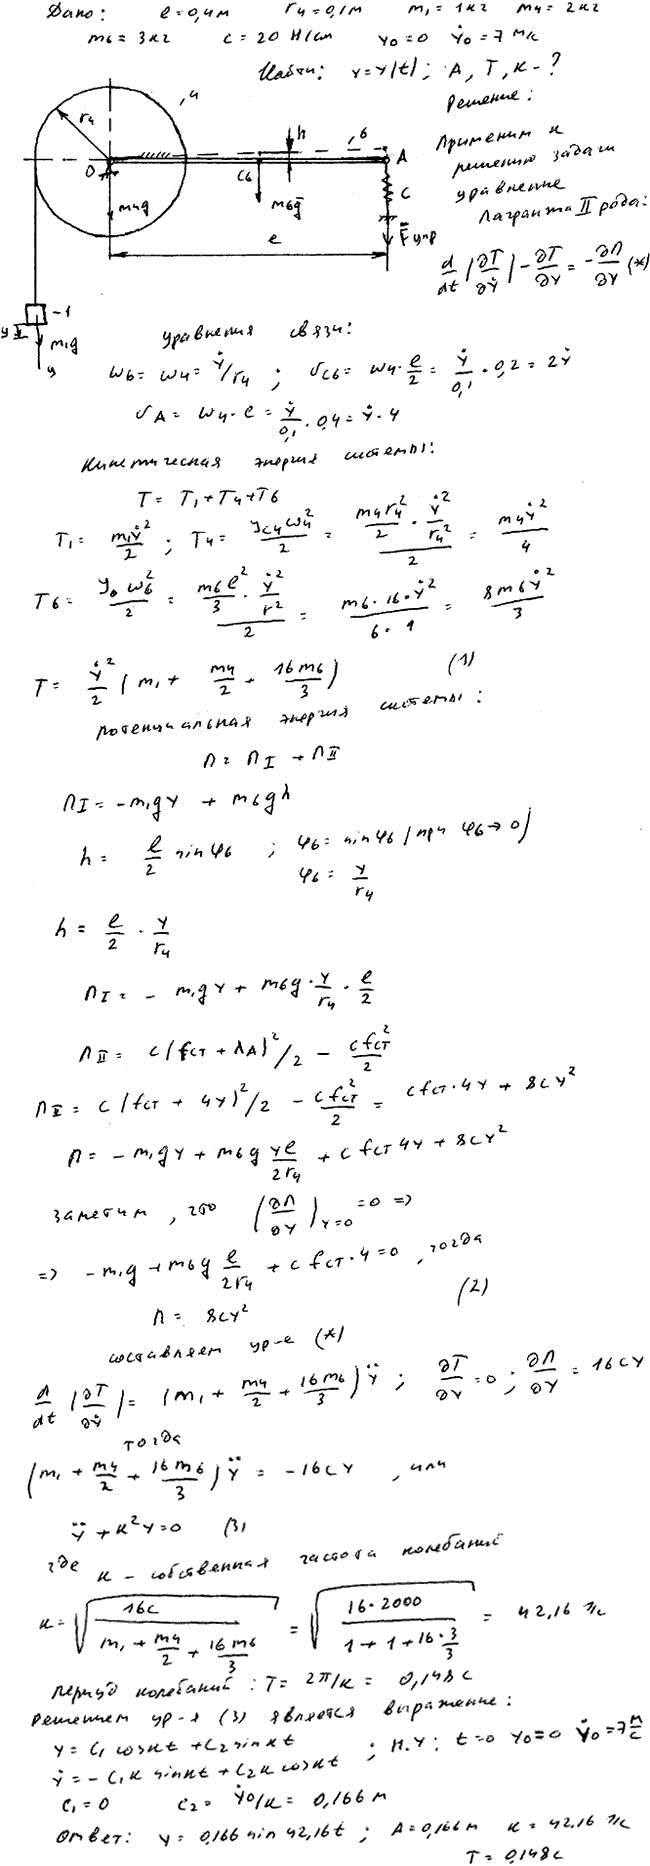 Дано: ℓ=0,4м r₄=0,1м m₁=1кг m₄=2кг
m₆=3кг c=20 Н/см y₀=0 ẏ₀=7 м/с
Найти: y=y(t); A, T, к-?
Решение:
r₄ 4
h 6
O C₆ A
m₄g m₆g̅ c
F̅упр
ℓ
1
y m₁g
y
Применим к
решению задачи
уравнение
Лагранжа II рода:
d/dt (∂T/∂ẏ) - ∂T/∂y = -∂П/∂y (*)
уравнения связи:
ω₆ = ω₄ = ẏ/r₄ ; υC₆ = ω₄·ℓ/2 = ẏ/0,1 · 0,2 = 2ẏ
υA = ω₄·ℓ = ẏ/0,1 · 0,4 = ẏ·4
Кинетическая энергия системы:
T = T₁+T₄+T₆
T₁ = m₁ẏ²/2 ; T₄ = JC₄ω₄²/2 = (m₄r₄²/2 · ẏ²/r₄²)/2 = m₄ẏ²/4
T₆ = J₀ω₆²/2 = (m₆ℓ²/3 · ẏ²/r²)/2 = m₆·16·ẏ²/6·1 = 8m₆ẏ²/3
T = ẏ²/2 (m₁ + m₄/2 + 16m₆/3) (1)
потенциальная энергия системы:
П = ПI + ПII
ПI = -m₁gy + m₆gh
h = ℓ/2 sinφ₆ ; φ₆ = sinφ₆ (при φ₆→0)
φ₆ = y/r₄
h = ℓ/2 · y/r₄
ПI = - m₁gy + m₆g · y/r₄ · ℓ/2
ПII = c(fст + λA)²/2 - cfст²/2
ПII = c(fст + 4y)²/2 - cfст²/2 = cfст·4y + 8cy²
П = -m₁gy + m₆g yℓ/2r₄ + cfст4y + 8cy²
заметим, что (∂П/∂y)y=0 = 0 =>
=> -m₁g + m₆g ℓ/2r₄ + cfст·4 = 0, тогда
П = 8cy² (2)
составляем ур-е (*)
d/dt (∂T/∂ẏ) = (m₁ + m₄/2 + 16m₆/3) ÿ ; ∂T/∂y = 0 ; ∂П/∂y = 16cy
тогда
(m₁ + m₄/2 + 16m₆/3) ÿ = -16cy, или
ÿ + к²y = 0 (3)
где к - собственная частота колебаний
к = √(16c/(m₁ + m₄/2 + 16m₆/3)) = √(16·2000/(1+1+16·3/3)) = 42,16 1/с
период колебаний: T = 2π/к = 0,148с
Решением ур-я (3) является выражение:
y = C₁ cosкt + C₂ sinкt ; Н.У: t=0 y₀=0 ẏ₀=7 м/с
ẏ = -C₁к sinкt + C₂к cosкt
C₁=0 C₂ = ẏ₀/к = 0,166 м
Ответ: y = 0,166 sin 42,16t ; A=0,166м к = 42,16 1/с
T = 0,148с